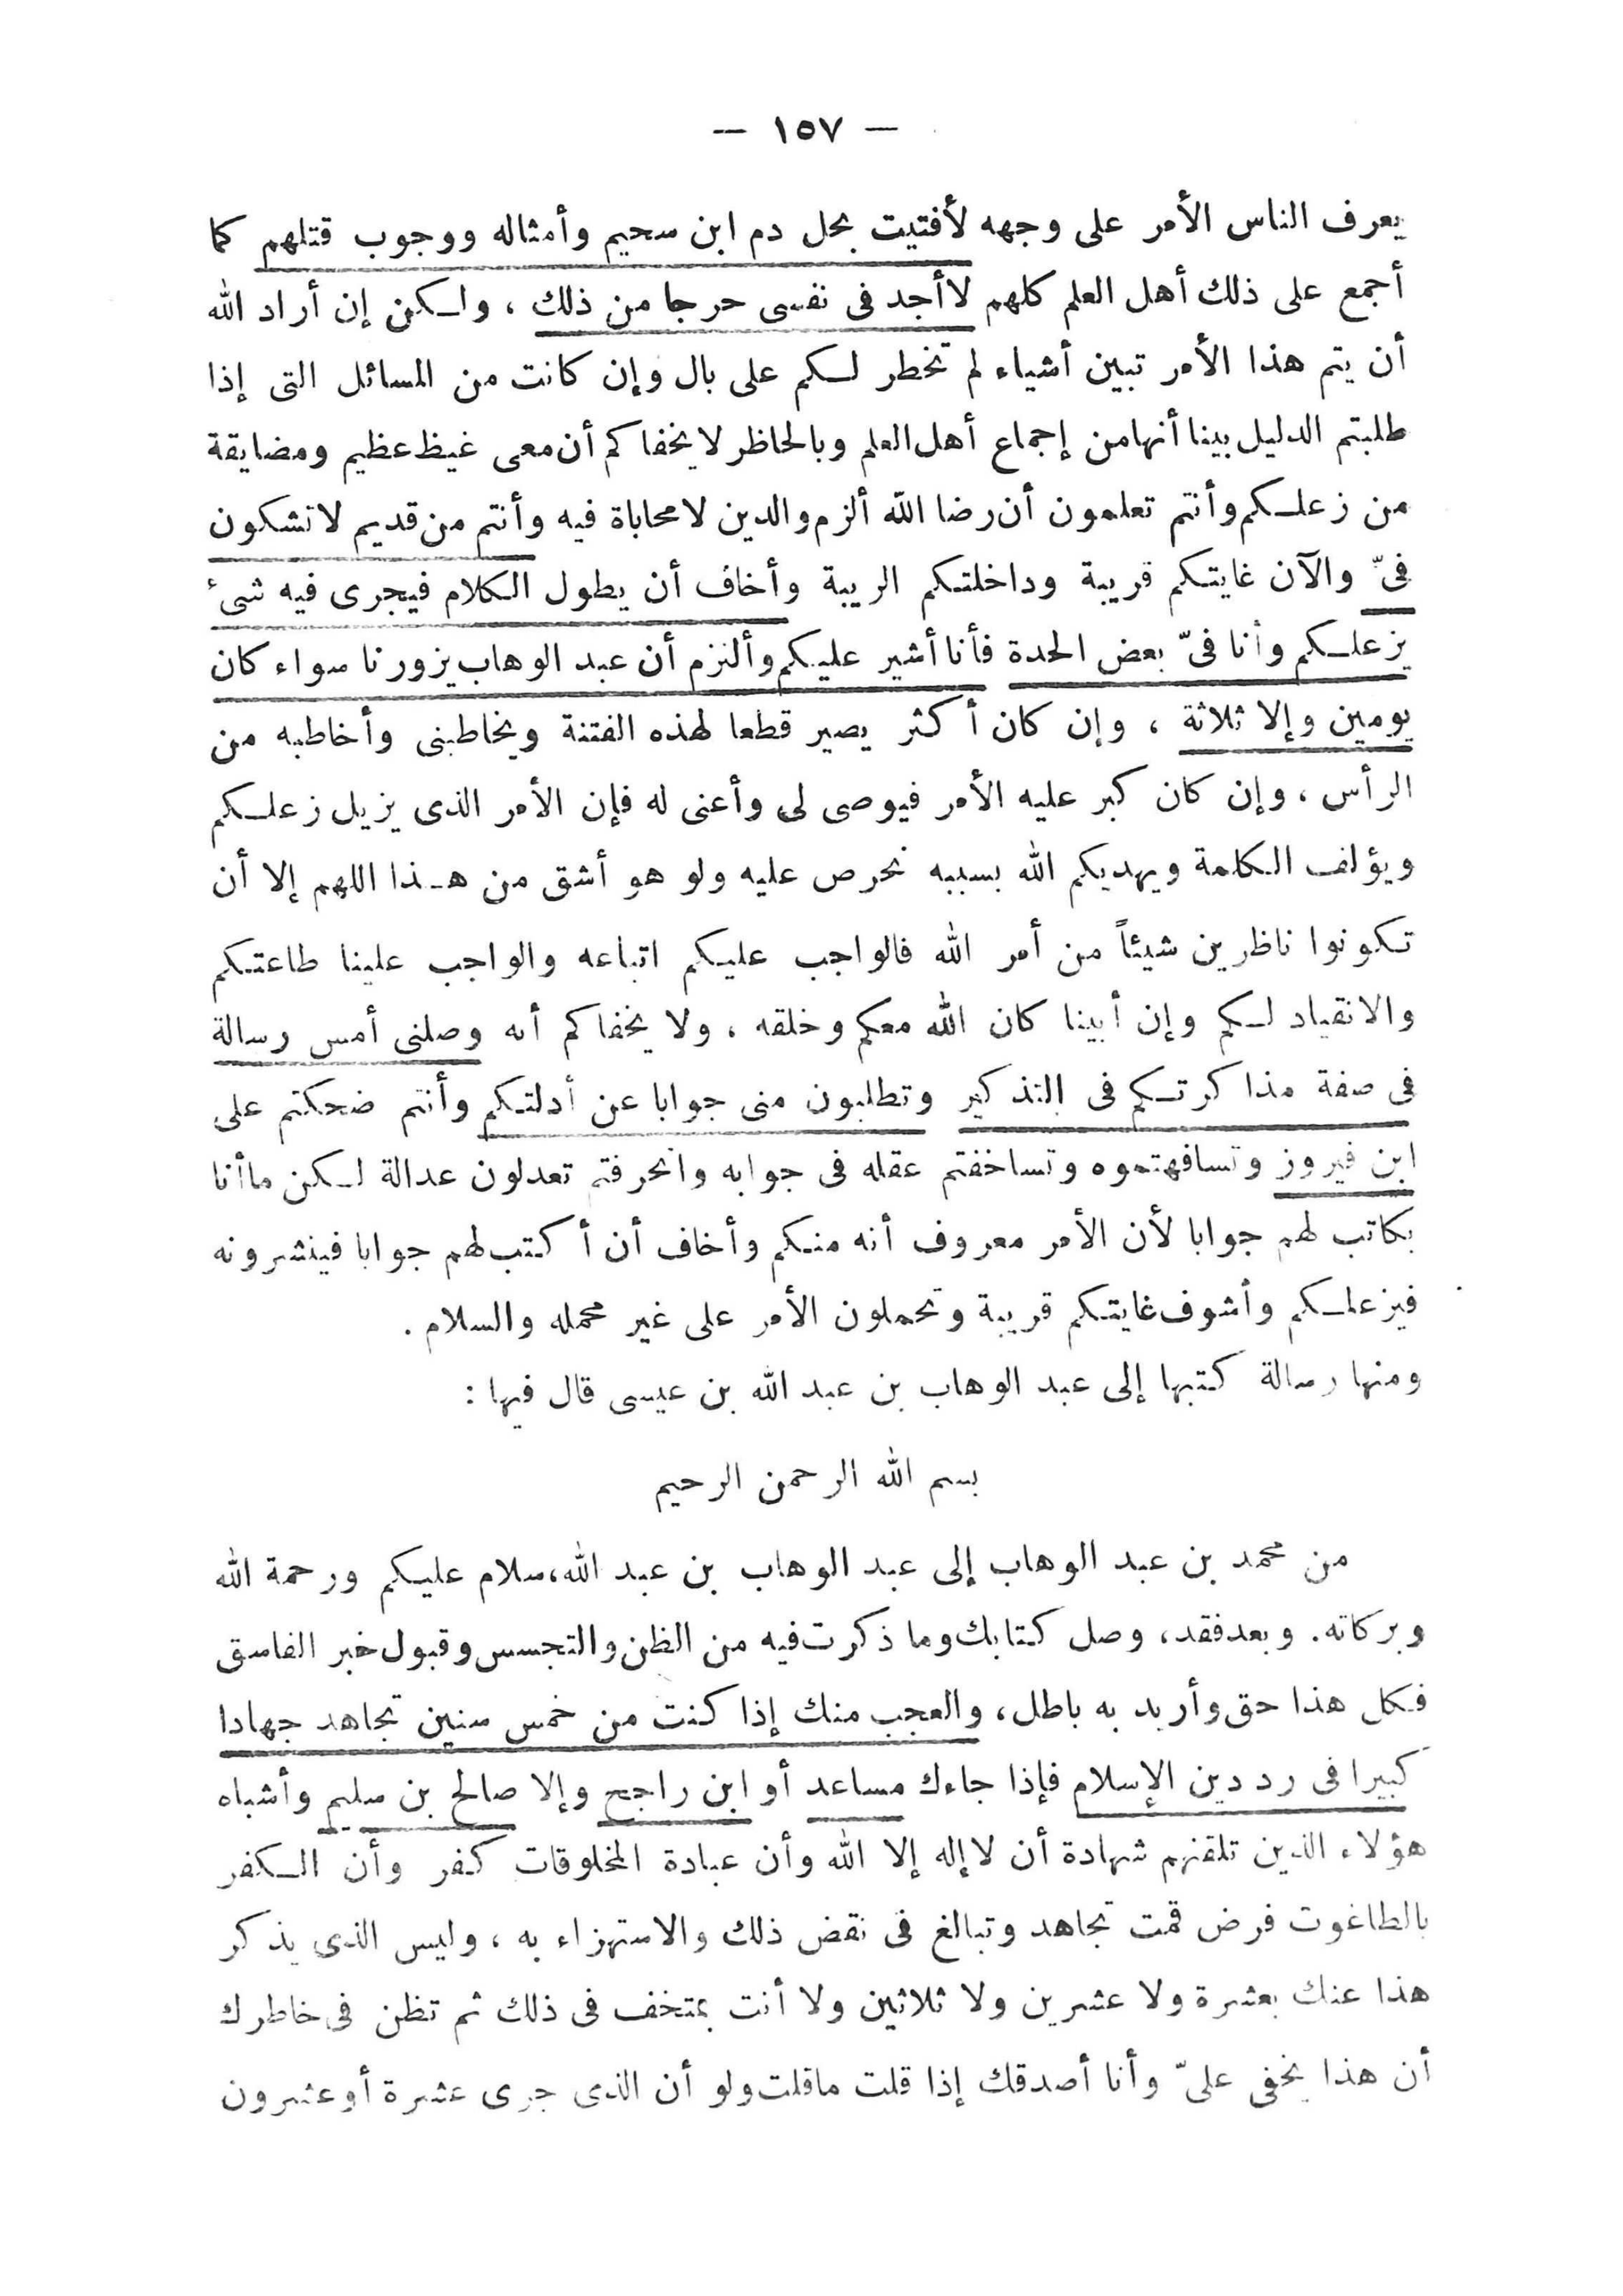 — ١٥٧ —
يعرف الناس الأمر على وجهه لأفتيت بحل دم ابن سحيم وأمثاله ووجوب قتلهم كما
أجمع على ذلك أهل العلم كلهم لا أجد فى نفسى حرجا من ذلك ، ولكن إن أراد الله
أن يتم هذا الأمر تبين أشياء لم تخطر لكم على بال وإن كانت من المسائل التى إذا
طلبتم الدليل بينا أنها من إجماع أهل العلم وبالحاظر لا يخفاكم أن معى غيظ عظيم ومضايقة
من زعلكم وأنتم تعلمون أن رضا الله ألزم والدين لا محاباة فيه وأنتم من قديم لا تشكون
فىّ والآن غايتكم قريبة وداخلتكم الريبة وأخاف أن يطول الكلام فيجرى فيه شىء
يزعلكم وأنا فىّ بعض الحدة فأنا أشير عليكم وألزم أن عبد الوهاب يزورنا سواء كان
يومين وإلا ثلاثة ، وإن كان أكثر يصير قطعا لهذه الفتنة ويخاطبنى وأخاطبه من
الرأس ، وإن كان كبر عليه الأمر فيوصى لى وأعنى له فإن الأمر الذى يزيل زعلكم
ويؤلف الكلمة ويهديكم الله بسببه نحرص عليه ولو هو أشق من هذا اللهم إلا أن
تكونوا ناظرين شيئاً من أمر الله فالواجب عليكم اتباعه والواجب علينا طاعتكم
والانقياد لكم وإن أبينا كان الله معكم وخلقه ، ولا يخفاكم أنه وصلنى أمس رسالة
فى صفة مذاكرتكم فى التذكير وتطلبون منى جوابا عن أدلتكم وأنتم ضحكتم على
ابن فيروز وتسافهتموه وتساخفتم عقله فى جوابه وانحرفتم تعدلون عدالة لكن ما أنا
بكاتب لهم جوابا لأن الأمر معروف أنه منكم وأخاف أن أكتب لهم جوابا فينشرونه
فيزعلكم وأشوف غايتكم قريبة وتحملون الأمر على غير محمله والسلام .
ومنها رسالة كتبها إلى عبد الوهاب بن عبد الله بن عيسى قال فيها :
بسم الله الرحمن الرحيم
من محمد بن عبد الوهاب إلى عبد الوهاب بن عبد الله ، سلام عليكم ورحمة الله
وبركاته . وبعد فقد ، وصل كتابك وما ذكرت فيه من الظن والتجسس وقبول خبر الفاسق
فكل هذا حق وأريد به باطل ، والعجب منك إذا كنت من خمس سنين تجاهد جهادا
كبيرا فى رد دين الإسلام فإذا جاءك مساعد أو ابن راجح وإلا صالح بن سليم وأشباه
هؤلاء الذين تلقنهم شهادة أن لا إله إلا الله وأن عبادة المخلوقات كفر وأن الكفر
بالطاغوت فرض قمت تجاهد وتبالغ فى نقض ذلك والاستهزاء به ، وليس الذى يذكر
هذا عنك بعشرة ولا عشرين ولا ثلاثين ولا أنت بمتخف فى ذلك ثم تظن فى خاطرك
أن هذا يخفى علىّ وأنا أصدقك إذا قلت ما قلت ولو أن الذى جرى عشرة أو عشرون